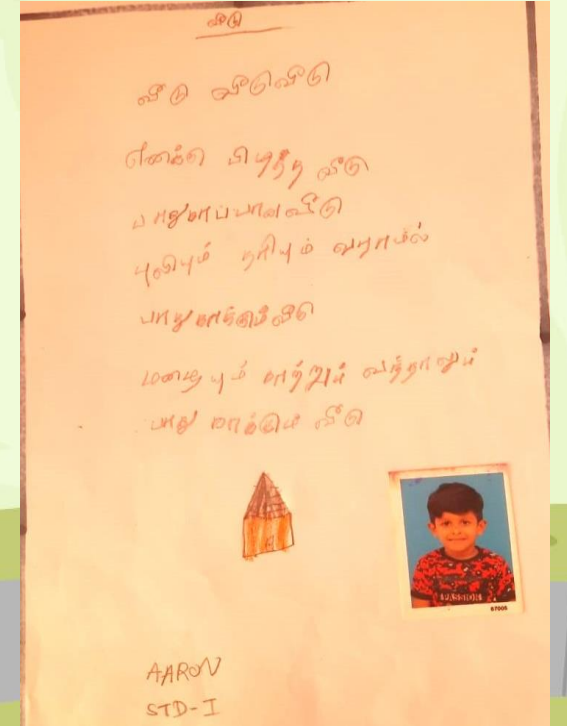 வீடு
வீடு வீடு வீடு
எனக்கு பிடித்த வீடு
பாதுகாப்பான வீடு
புலியும் நரியும் வராமல்
பாதுகாக்கும் வீடு
மழையும் காற்றும் வந்தாலும்
பாதுகாக்கும் வீடு
PASSION
57005
AARON
STD-I